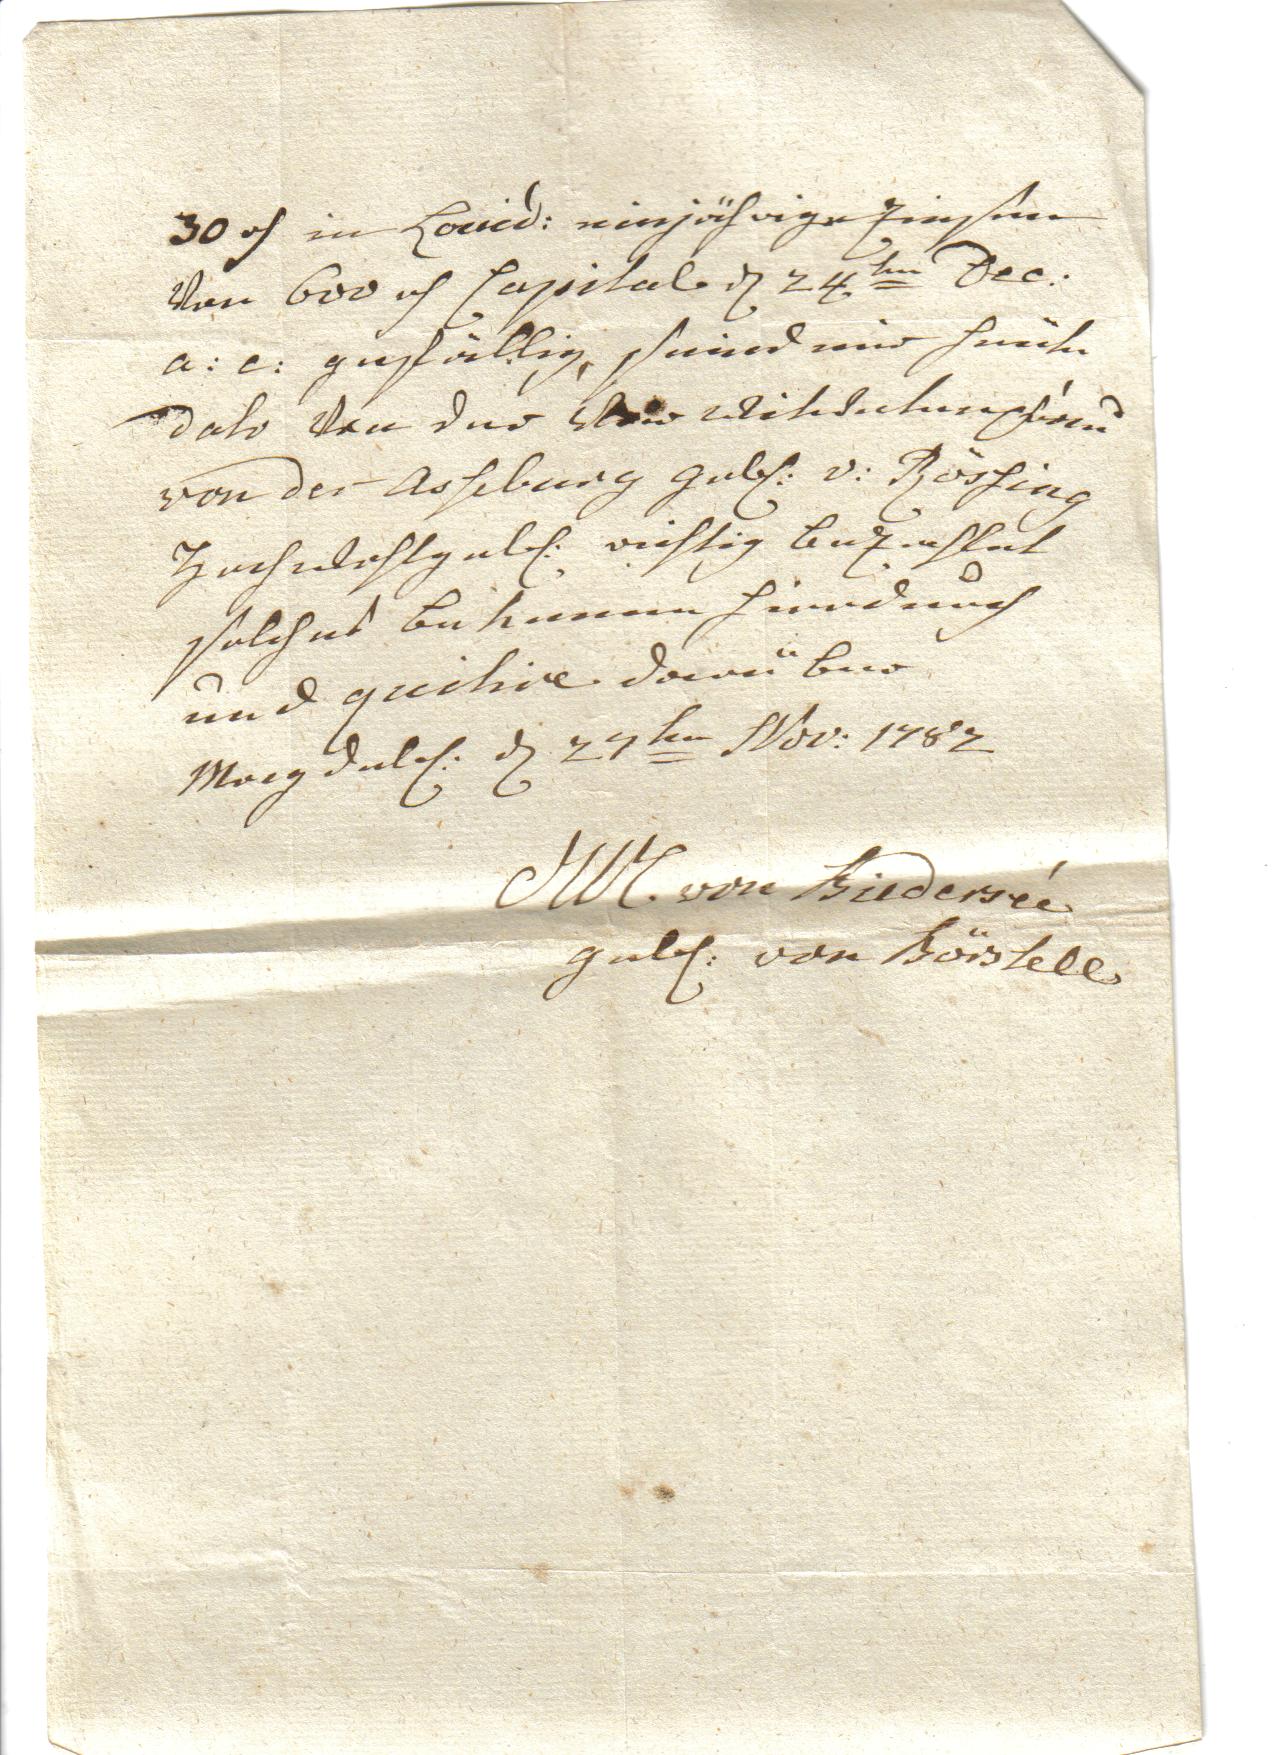 30 rth in Louisd: einjährige Zinsen
Von 600 rth Capital d 24ten Dec:
a: c: gefällig, seind mir heute
dato Von der Frau
von der Asseburg geb: v: Rössing
Hochwohlgeb: richtig bezahlet
solches bekenne hierdurch
und quitire darüber
Magdeb: d 27ten Nov: 1782
von Biedersée
geb: von Börstell